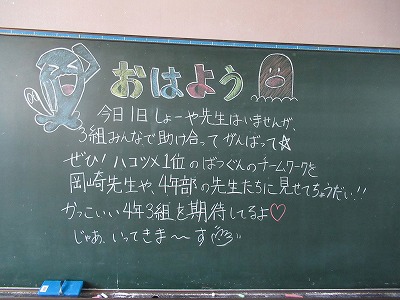 おはよう
今日1日しょーや先生はいませんが、
3組みんなで助け合ってがんばって☆
ぜひ!ハコヅメ1位のばつぐんのチームワークを
岡崎先生や、4年部の先生たちに見せてちょうだい!!
かっこいい4年3組を期待してるよ♡
じゃあ、いってきま〜す